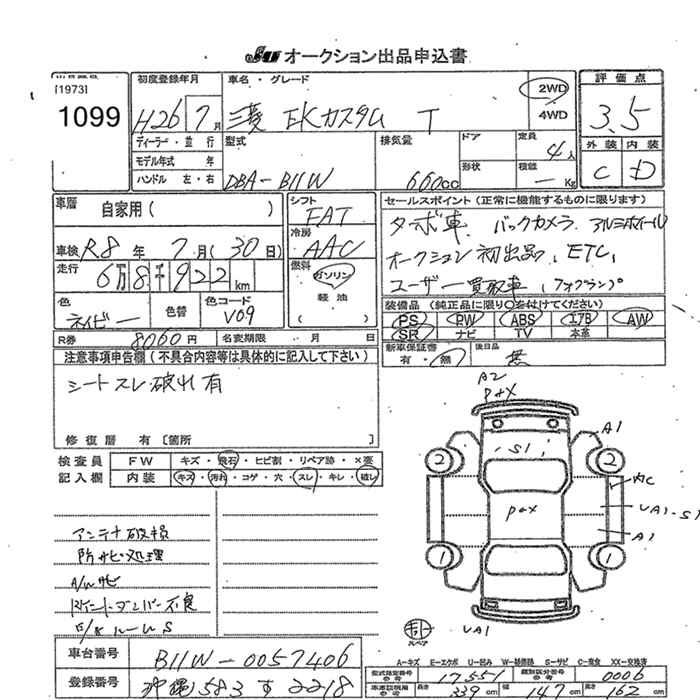 JU オークション出品申込書
[1973]
1099
初度登録年月
H26 7月
車名・グレード
三菱 EKカスタム T
2WD
4WD
評価点
3.5
外装 内装
C D
ディーラー・並行
モデル年式 年
ハンドル 左・右
型式
DBA-B11W
排気量
660cc
ドア
形状
定員
4人
積載
― Kg
車歴 自家用( )
車検 R8 年 7月(30日)
走行 6万8千922km
色
ネイビー
色替
色コード
V09
シフト
FAT
冷房
AAC
燃料
ガソリン
軽油
( )
セールスポイント(正常に機能するものに限ります)
ターボ車 バックカメラ アルミホイール
オークション初出品、ETC、
ユーザー買取車、フォグランプ
装備品(純正品に限り○を付けてください)
PS PW ABS エアB AW
SR ナビ TV 本革
新車保証書
有・無
後日品
無
R券 8060円 名変期限 月 日
注意事項申告欄(不具合内容等は具体的に記入して下さい)
シートスレ破れ有
修復歴 有〔箇所 〕
検査員
記入欄
FW キズ・飛石・ヒビ割・リペア跡・×要
内装 キズ・汚れ・コゲ・穴・スレ・キレ・破レ
アンテナ破損
防サビ処理
A/Wサビ
ルームS
A2
P±X
S1
A1
2 2
内C
P±X
UA1-S1
A1
1 1
スペア
UA1
A-キズ E-エクボ U-凹み W-補修跡 S-サビ C-腐食 XX-交換済
車台番号
B11W-0057406
登録番号
沖縄 583 す 2218
型式指定番号の参考
17551
類別区分番号の参考
0006
長さ 339cm 幅 147cm 高さ 162cm